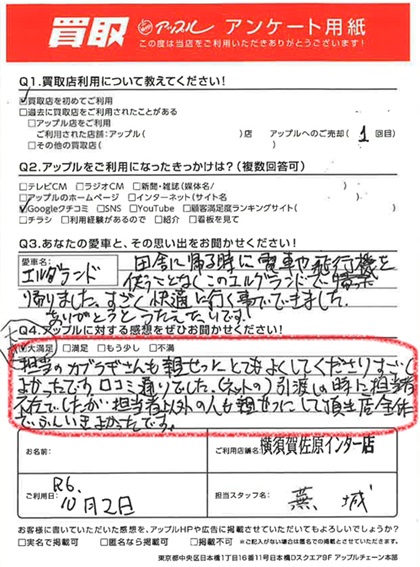 買取 アップル アンケート用紙
この度は当店をご利用いただきありがとうございます!
Q1.買取店利用について教えてください!
☑買取店を初めてご利用
□過去に買取店をご利用されたことがある
□アップル店をご利用
ご利用された店舗:アップル( )店 アップルへのご売却( 1 回目)
□その他の買取店( )
Q2.アップルをご利用になったきっかけは?(複数回答可)
□テレビCM □ラジオCM □新聞・雑誌(媒体名/ )
□アップルのホームページ □インターネット(サイト名 )
☑Googleクチコミ □SNS □YouTube □顧客満足度ランキングサイト( )
□チラシ □利用経験があるので □紹介 □看板を見て
Q3.あなたの愛車と、その思い出をお聞かせください!
愛車名:
エルグランド
田舎に帰る時に電車や飛行機を
使うことなくこのエルグランドで
帰りました。すごく快適に行き来できました。
ありがとうとうたえたいです!
Q4.アップルに対する感想をぜひお聞かせください!
☑大満足 □満足 □もう少し □不満
担当のカブラギさんも親せつにとてもよくしてくださりすごく
よかったです。口コミ通りでした。(ネットの)引渡しの時に担当者
不在でしたが担当者以外の人も親せつにして頂き店全体
でよかったです。
お名前:
ご利用店舗名:横須賀佐原インター店
ご利用日:R6. 10月2日
担当スタッフ名:蕪城
お客様に書いていただいた感想を、アップルHPや広告に掲載させていただいてもよろしいでしょうか?
□実名で掲載可 □匿名なら掲載可 □掲載不可 ※ご記入がない場合は匿名での掲載とさせていただきます。
東京都中央区日本橋1丁目16番11号日本橋DスクエアBF アップルチェーン本部